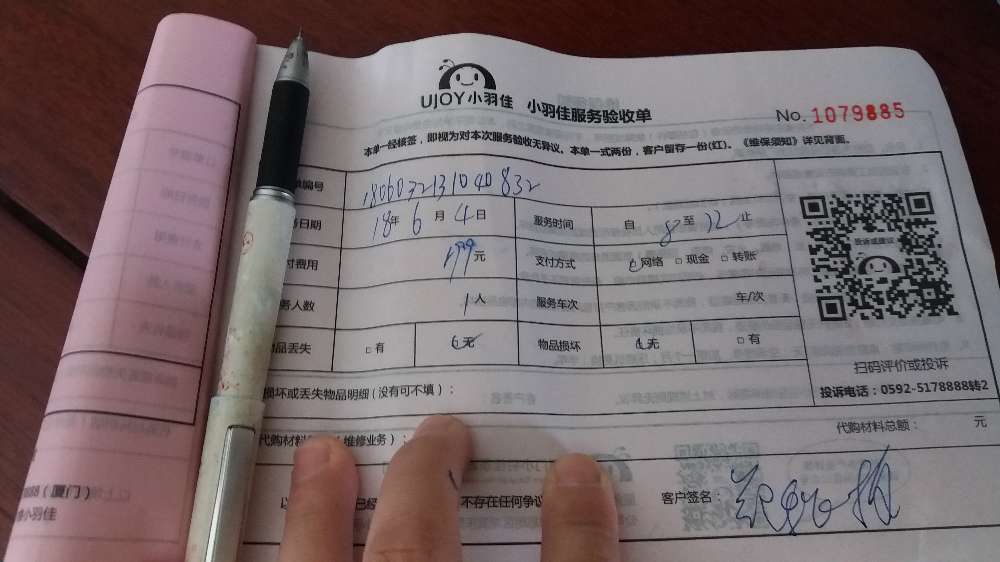 UJOY小羽佳 小羽佳服务验收单
No. 1079885
本单一经核签，即视为对本次服务验收无异议。本单一式两份，客户留存一份(红)。《维保须知》详见背面。
编号 1806032131040832
日期 18年 6月 4日 服务时间 自 8 至 12 止
投诉或建议
费用 元 支付方式 网络 □ 现金 □ 转账
人数 1人 服务车次 车/次
品丢失 □ 有 无 物品损坏 无 □ 有
扫码评价或投诉
投诉电话：0592-5178888转2
损坏或丢失物品明细（没有可不填）：
代购材料 维修业务）： 代购材料总额： 元
888（厦门）
小羽佳
以 已经 不存在任何争议 客户签名：